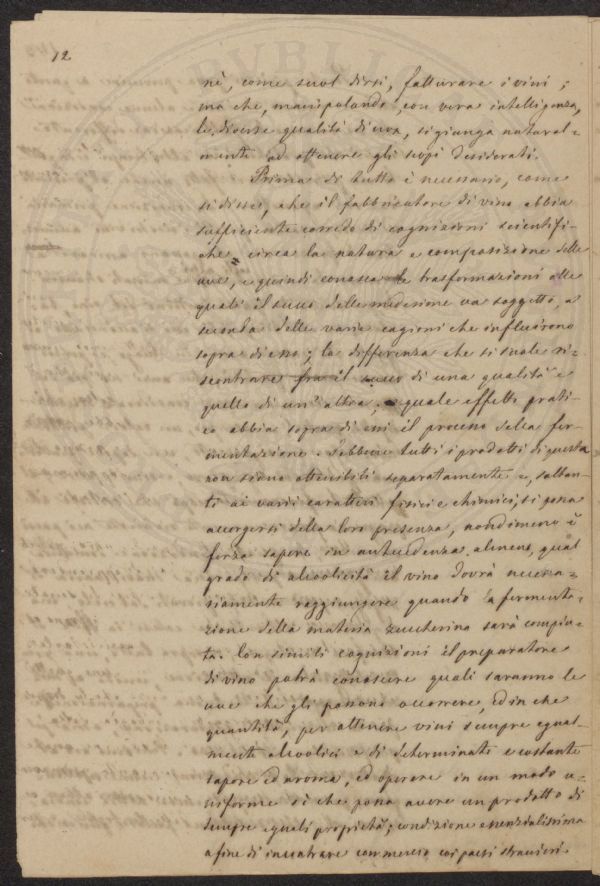 12
nè, come suol dirsi, fatturare i vini;
ma che, manipolando, con vera intelligenza,
le diverse qualità di uva, si giunga natural=
mente ad ottenere gli scopi desiderati.
Prima di tutto è necessario, come
si disse, che il fabbricatore di vino abbia
sufficiente corredo di cognizioni scientifi=
che circa la natura e composizione delle
uve, e quindi conosca le trasformazioni alle
quali il succo delle medesime va soggetto, a
seconda delle varie cagioni che influirono
sopra di esso; la differenza che si suole ri=
scontrare fra il succo di una qualità e
quello di un' altra; quale effetto prati=
co abbia sopra di essi il processo della fer=
mentazione. Sebbene tutti i prodotti di questa
non siano ottenibili separatamente e, soltan=
to ai varii caratteri fisici e chimici, si possa
accorgersi della loro presenza, nondimeno è
forza sapere in antecedenza, almeno, qual
grado di alcoolicità il vino dovrà necessa=
riamente raggiungere quando la fermenta=
zione della materia zuccherina sarà compiu=
ta. Con simili cognizioni il preparatore
di vino potrà conoscere quali saranno le
uve che gli possono occorrere, ed in che
quantità, per ottenere vini sempre egual=
mente alcoolici e di determinato e costante
sapore ed aroma, ed operare in un modo u=
niforme sì che possa avere un prodotto di
sempre eguali proprietà; condizione essenzialissima
a fine di incontrare commercio coi paesi stranieri.